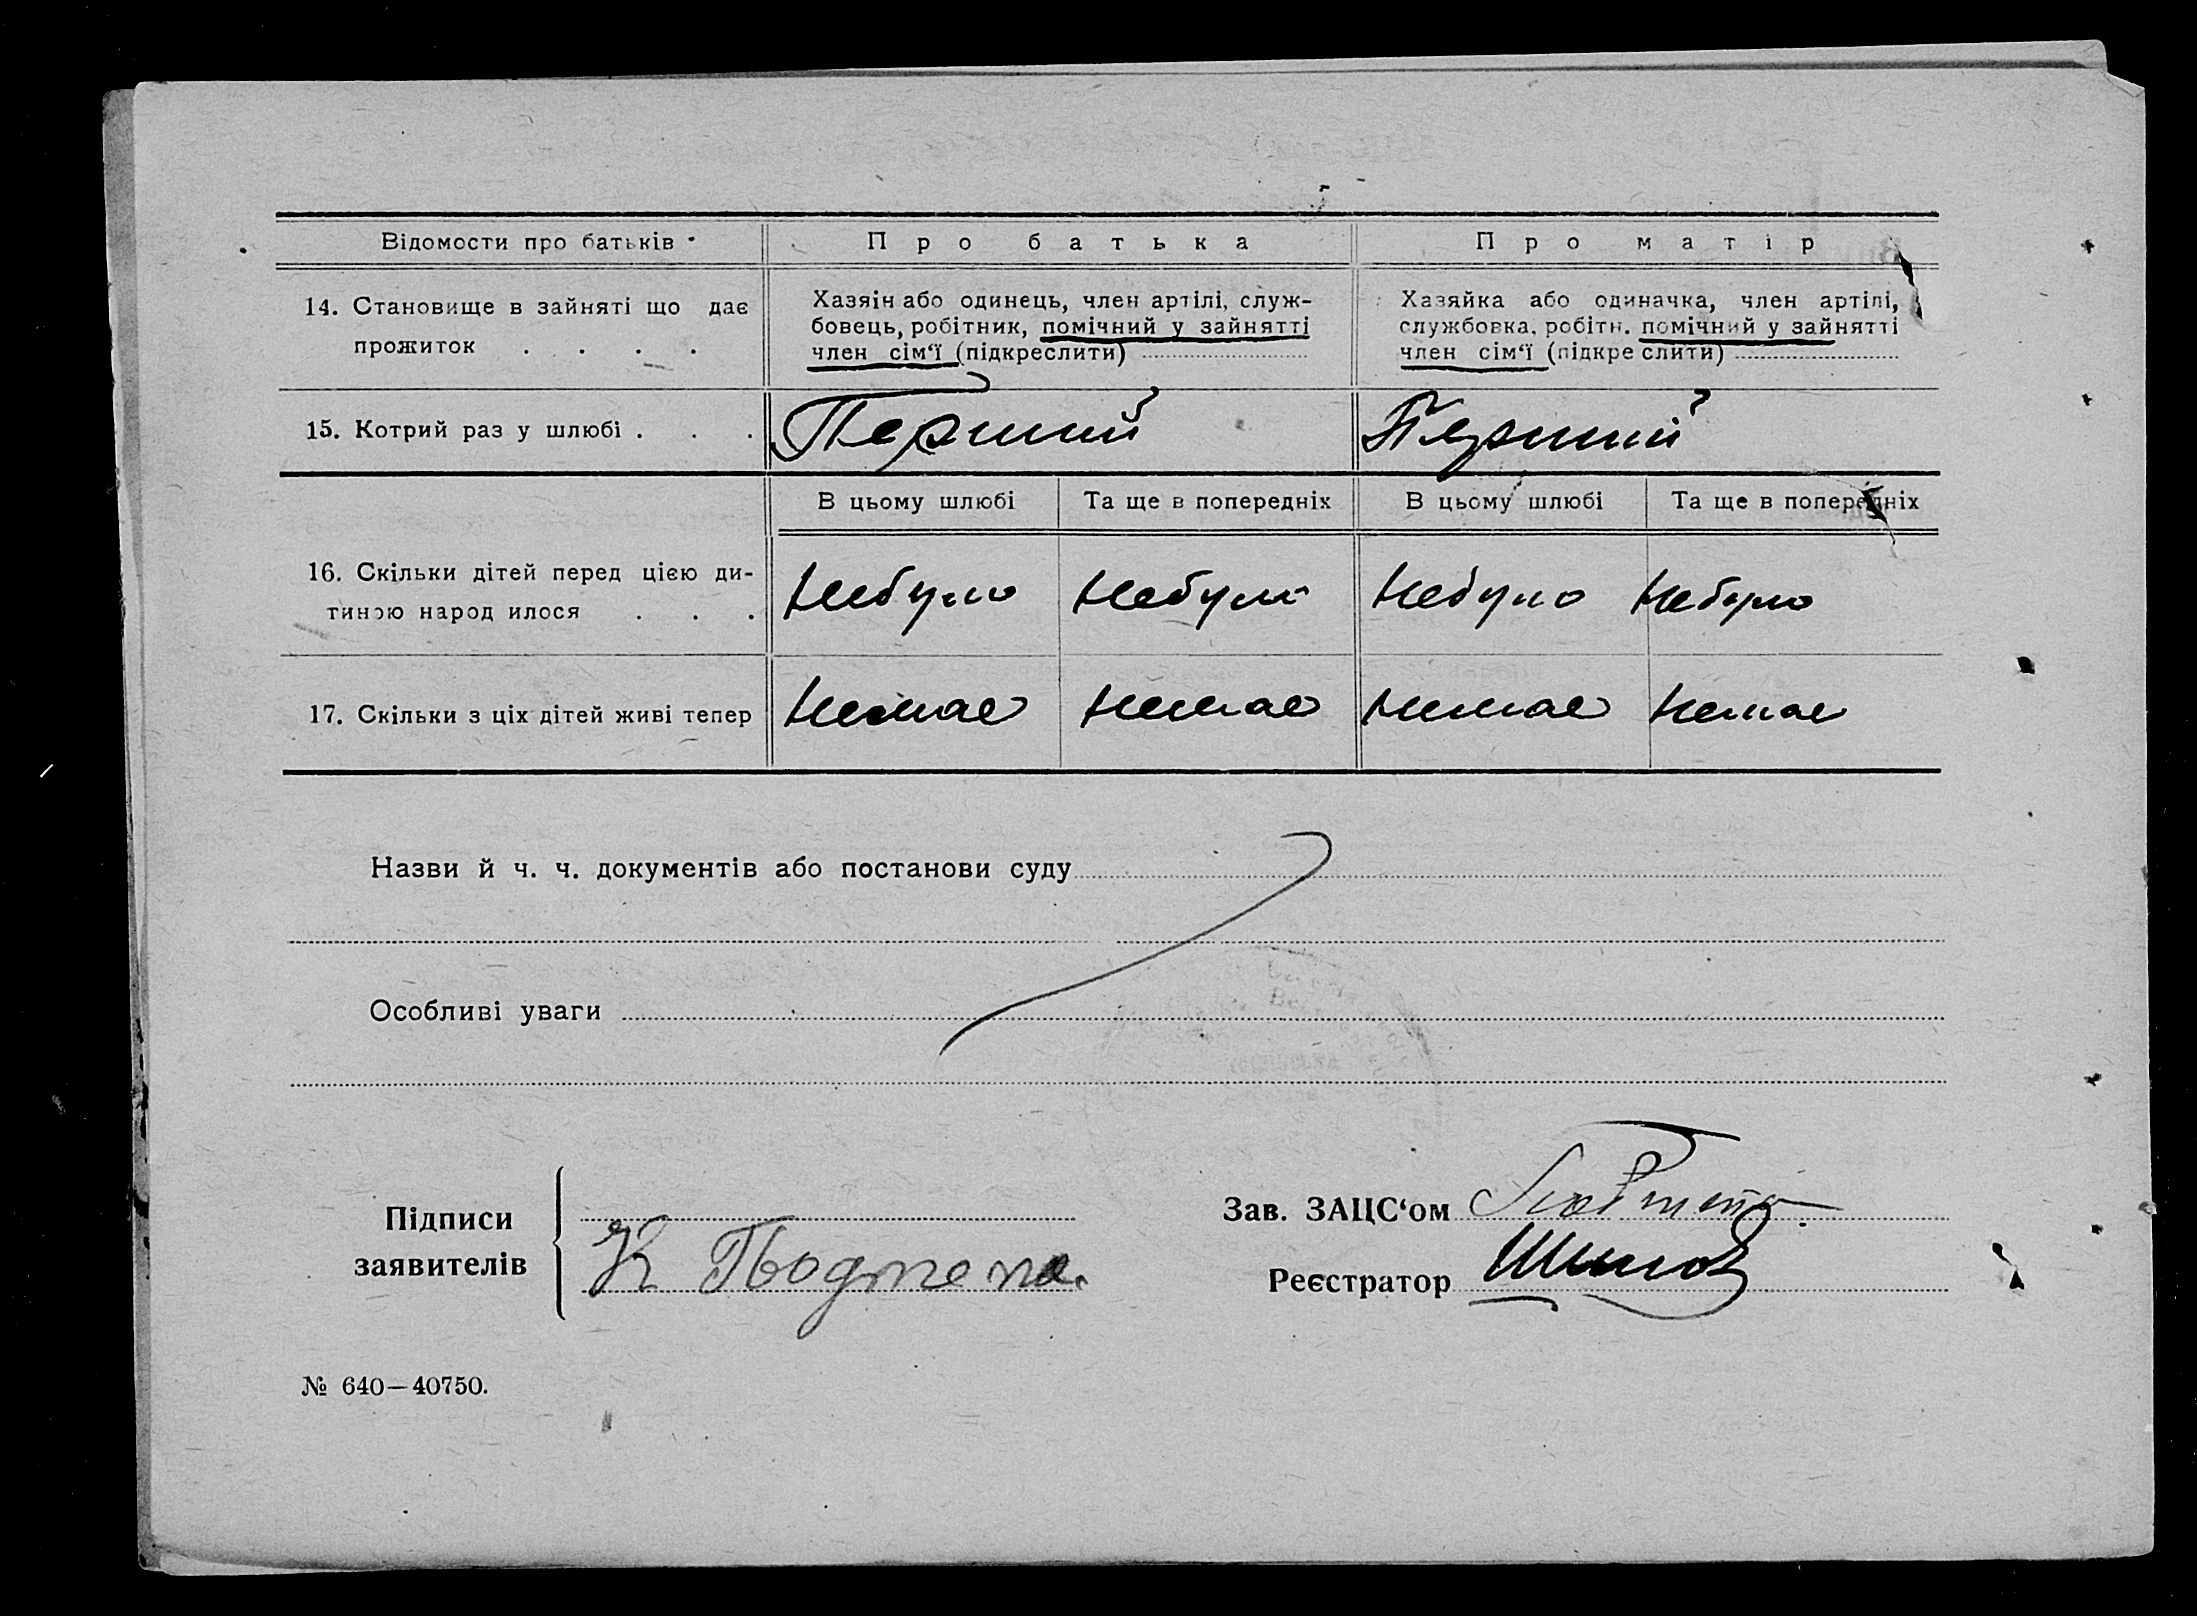 Відомости про батьків
Про батька
Про матір
14. Становище в зайняті що дає
прожиток . . . .
Хазяїн або одинець, член артілі, служ-
бовець, робітник, помічний у зайнятті
член сім‘ї (підкреслити)
Хазяйка або одиначка, член артілі,
службовка, робітн. помічний у зайнятті
член сім‘ї (підкреслити)
15. Котрий раз у шлюбі . . .
Перший
Перший
В цьому шлюбі
Та ще в попередніх
В цьому шлюбі
Та ще в попередніх
16. Скільки дітей перед цією ди-
тиною народилося . . .
Небуло
Небуло
Небуло
Небуло
17. Скільки з ціх дітей живі тепер
Немає
Немає
Немає
Немає
Назви й ч. ч. документів або постанови суду
Особливі уваги
Підписи
заявителів
К
Зав. ЗАЦС‘ом
Реєстратор
№ 640—40750.